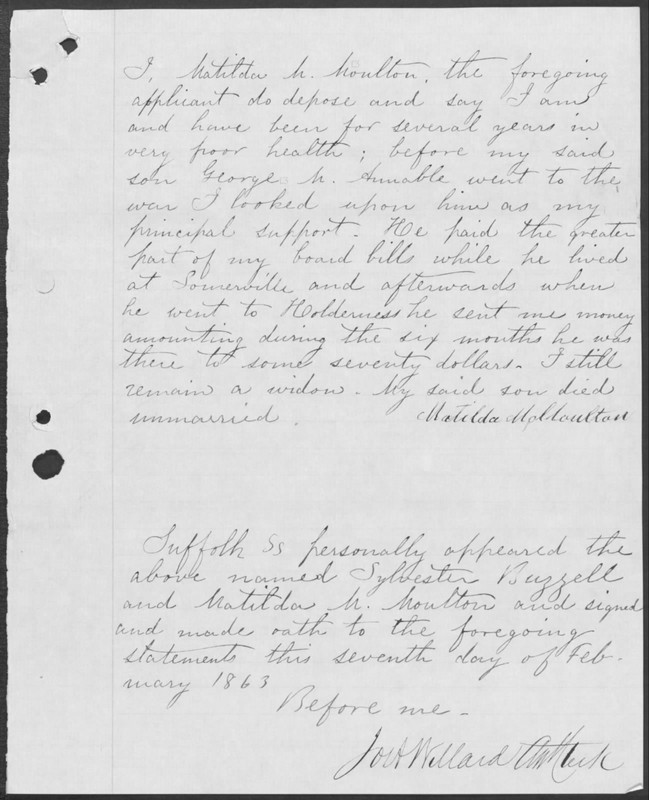 I, Matilda M. Moulton, the foregoing
applicant do depose and say I am
and have been for several years in
very poor health; before my said
son George M. Annable went to the
war I looked upon him as my
principal support. He paid the greater
part of my board bills while he lived
at Somerville and afterwards when
he went to Holderness he sent me money
amounting during the six months he was
there to some seventy dollars. I still
remain a widow. My said son died
unmarried.
Matilda M Moulton
Suffolk Ss personally appeared the
above named Sylvester Buzzell
and Matilda M. Moulton and signed
and made oath to the foregoing
statements this seventh day of Feb-
ruary 1863
Before me -
Jos A Willard